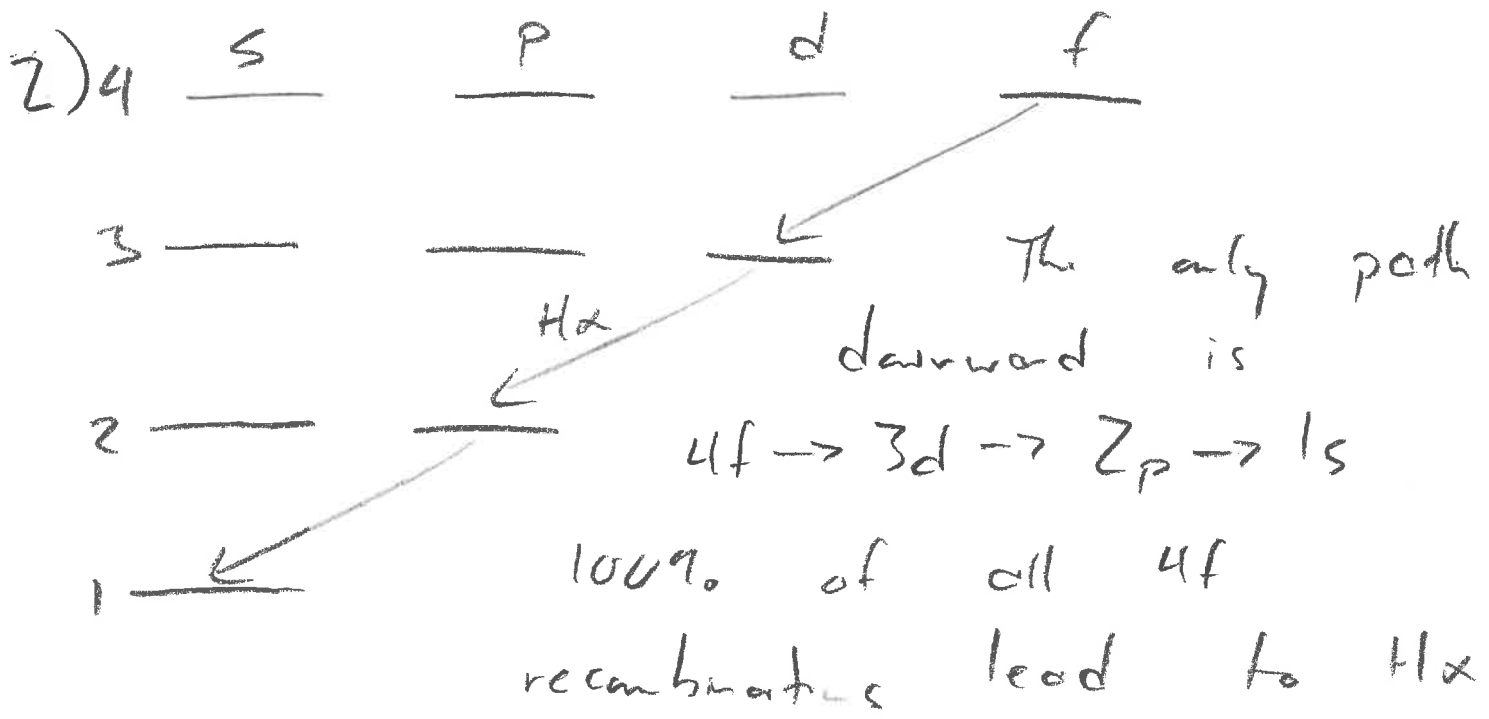 2) 4 s p d f
3
The only path
Hα
downward is
2
4f -> 3d -> 2p -> 1s
100% of all 4f
1
recombinations lead to Hα